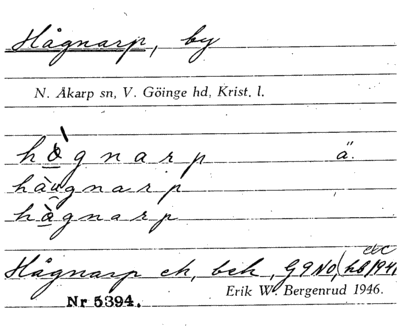 Hågnarp, by
N. Åkarp sn, V. Göinge hd, Krist. l.
hògnarp ä.
hàugnarp
hògnarp
etc
Hågnarp ek, bek, G9NO, (hb/1941
Nr 5394. Erik W. Bergenrud 1946.